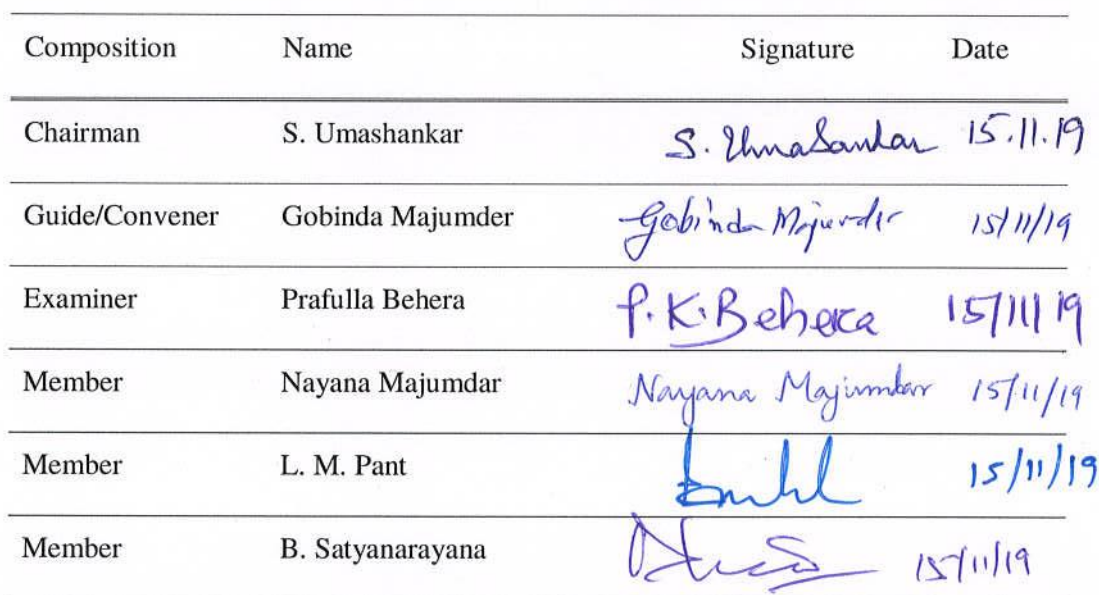 Composition Name Signature Date
Chairman S. Umashankar S. UmaSankar 15.11.19
Guide/Convener Gobinda Majumder Gobinda Majumder 15/11/19
Examiner Prafulla Behera P.K.Behera 15/11/19
Member Nayana Majumdar Nayana Majumdar 15/11/19
Member L. M. Pant 15/11/19
Member B. Satyanarayana 15/11/19